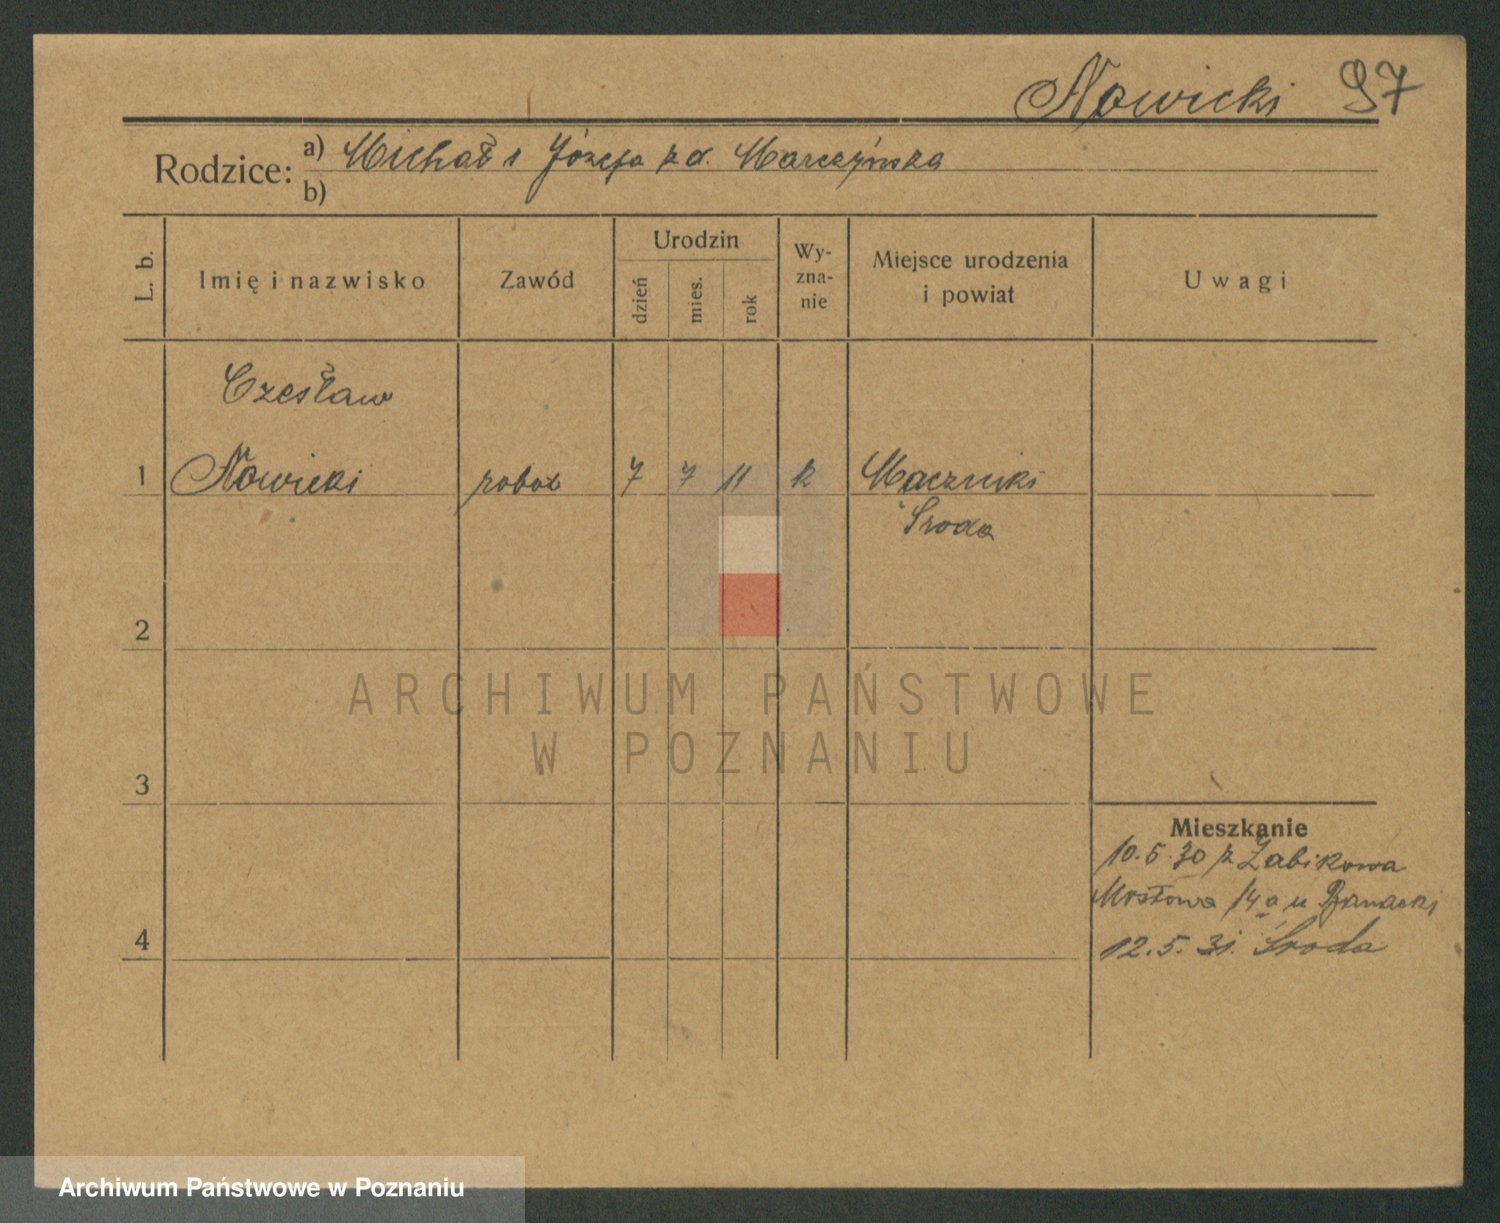 Nowicki 97
Rodzice: a) Michał i Józefa z d. Marczyńska
b)
L. b.
Imię i nazwisko
Zawód
Urodzin
dzień
mies.
rok
Wy-
zna-
nie
Miejsce urodzenia
i powiat
Uwagi
Czesław
1 Nowicki robot 7 7 11 k Mączniki
Środa
2
ARCHIWUM PAŃSTWOWE
W POZNANIU
3
Mieszkanie
10.5.30 z Żabikowa
Mostowa 14a u Banacki
4
12.5.31. Środa
Archiwum Państwowe w Poznaniu